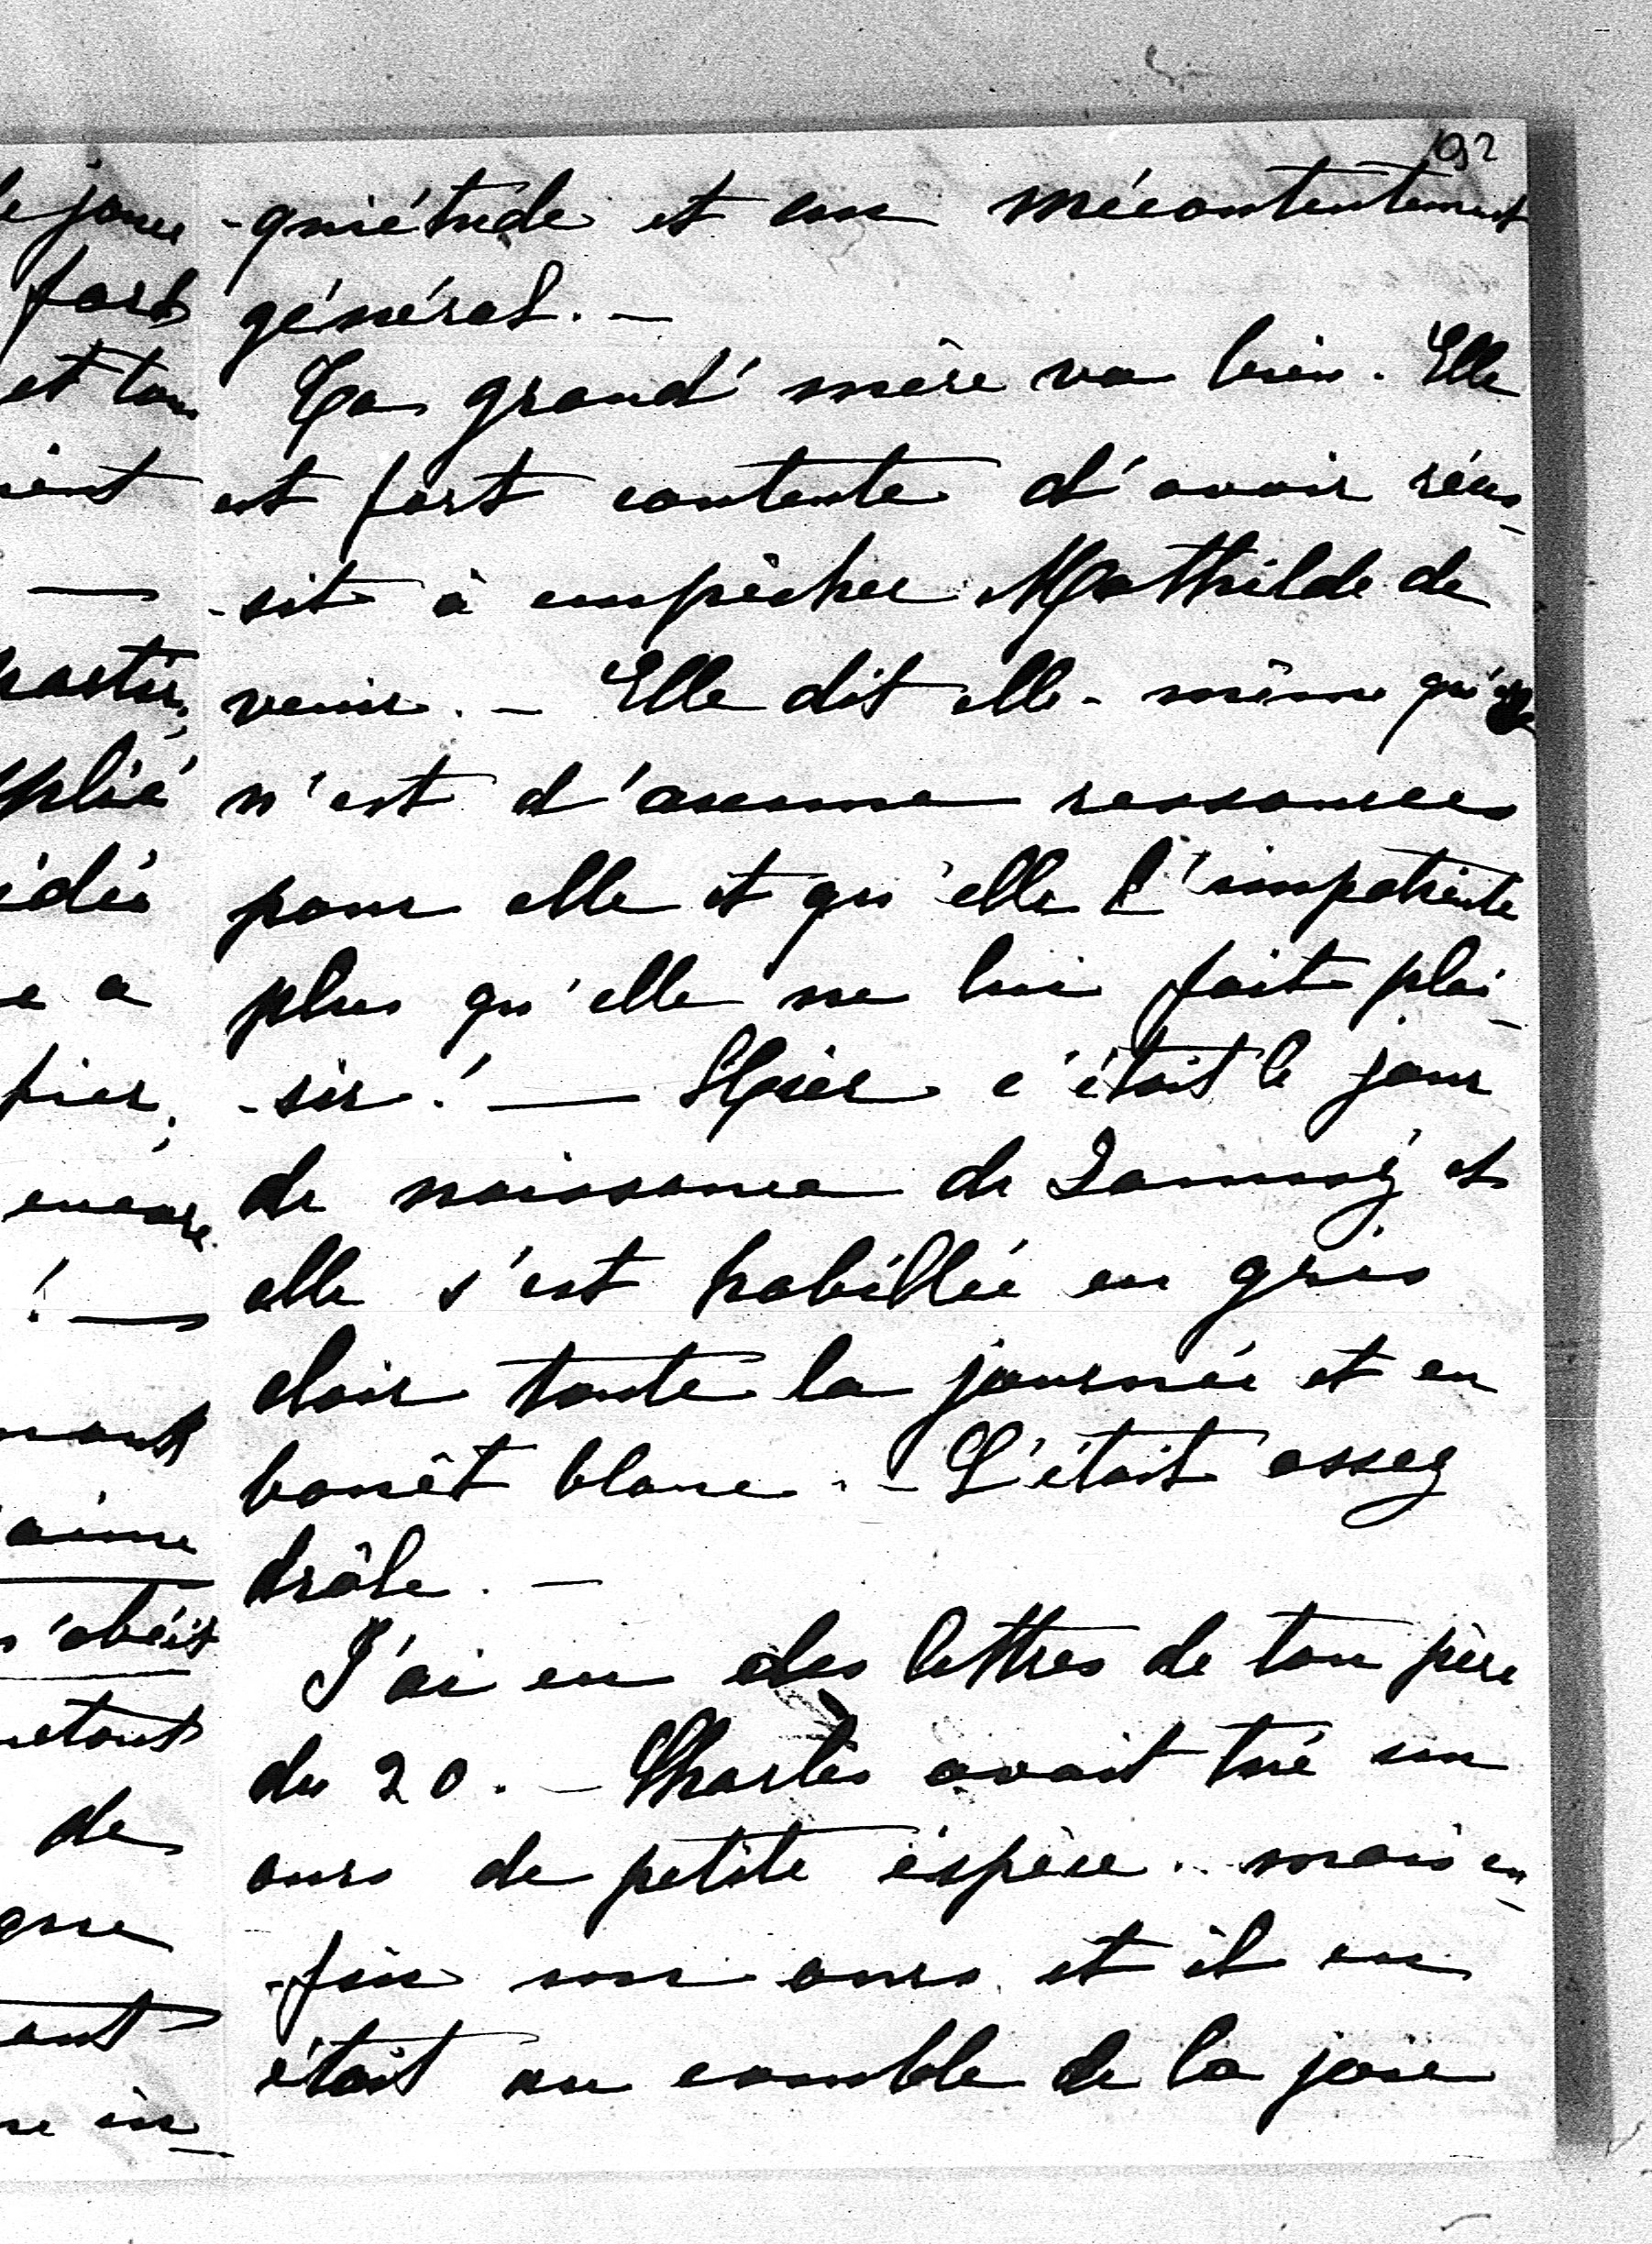 192
-quiétude et un mécontentement
général. -
Ta grand' mère va bien. Elle
est fort contente d'avoir réus-
-sit à empêcher Mathilde de
venir. - Elle dit elle-même qu'elle
n'est d'aucune ressources
pour elle et qu'elle l'impatiente
plus qu'elle ne lui fait plai-
-sir! — Hier c'était le jour
de naissance de et
elle s'est habillée en gris
clair toute la journée et en
bonêt blanc. - C'était assez
drôle. -
J'ai eu des lettres de ton père
du 20. - Charles avait tué un
ours de petite éspèce.. mais en-
-fin un ours et il en
était au comble de la joie
le jour
fort
et ton
ient
—
partir,
plié
idée
e a
fier,
encore
! —
mant
aime
n'obéis
de
que
ent
ne in-